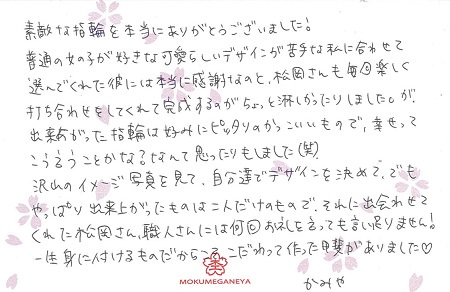 素敵な指輪を本当にありがとうございました!
普通の女の子が好きな可愛らしいデザインが苦手な私に合わせて
選んでくれた彼には本当に感謝なのと、松岡さんも毎回楽しく
打ち合わせをしてくれて完成するのがちょっと淋しかったりしました。が、
出来あがった指輪は好みにピッタリのかっこいいもので、幸せって
こうゆうことかな?なんて思ったりもしました(笑)
沢山のイメージ写真を見て、自分達でデザインを決めて、でも
やっぱり出来上がったものは二人だけのもので、それに出会わせて
くれた松岡さん、職人さんには何回お礼を言っても言い足りません!
一生身に付けるものだからこそこだわって作った甲斐がありました♡
かみや
MOKUMEGANEYA